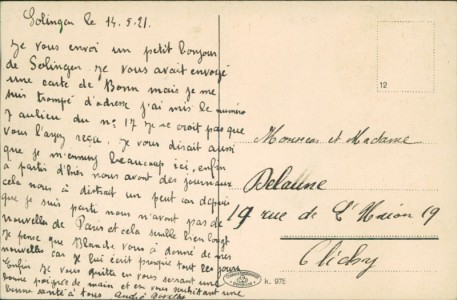 Solingen le 14.5.21.
Je vous envoi un petit bonjour
de Solingen je vous avait envoyé
une carte de Bonn mais je me
suis trompé d'adresse j'ai mis le numéro
7 aulieu du n° 17 Je ne croit pas que
vous l'ayez reçu. Je vous dirait aussi
que je m'ennuy beaucoup ici, enfin
a partir d'hier nous avont des journaux
cela nous à distrait un peut car depuis
que je suis parti nous n'avont pas de
nouvelles de Paris et cela semble bien long
Je pense que Blanche vous à donné de mes
nouvelles car je lui écrit presque tout les jours
Enfin je vous quitte en vous serrant une
bonne poignée de main et en vous souhaitant une
bonne santé à tous André
12
Monsieur et Madame
Delaune
19 rue de L'Union 19
Clichy
k. 975